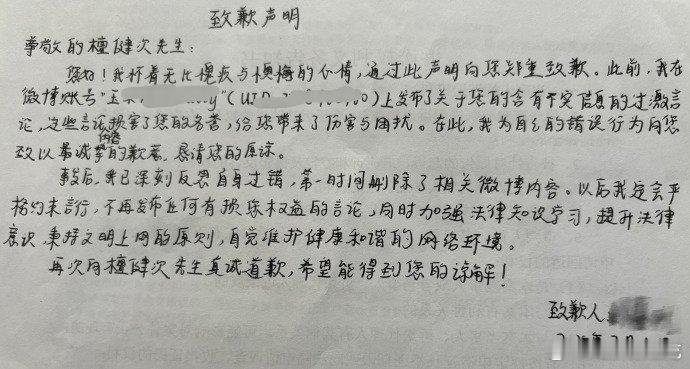 致歉声明
尊敬的檀健次先生:
您好!我怀着无比愧疚与懊悔的心情,通过此声明向您郑重致歉。此前,我在
微博账号"玉 (UID )上发布了关于您的含有不实信息的过激言
论,这些言论损害了您的名誉,给您带来了伤害与困扰。在此,我为自己的错误行为向您
致以最诚挚的歉意,恳请您的原谅。
事后,我已深刻反思自身过错,第一时间删除了相关微博内容。以后我定会严
格约束言行,不再发布任何有损您权益的言论,同时加强法律知识学习,提升法律
意识,秉持文明上网的原则,自觉维护健康和谐的网络环境。
再次向檀健次先生真诚道歉,希望能得到您的谅解!
致歉人